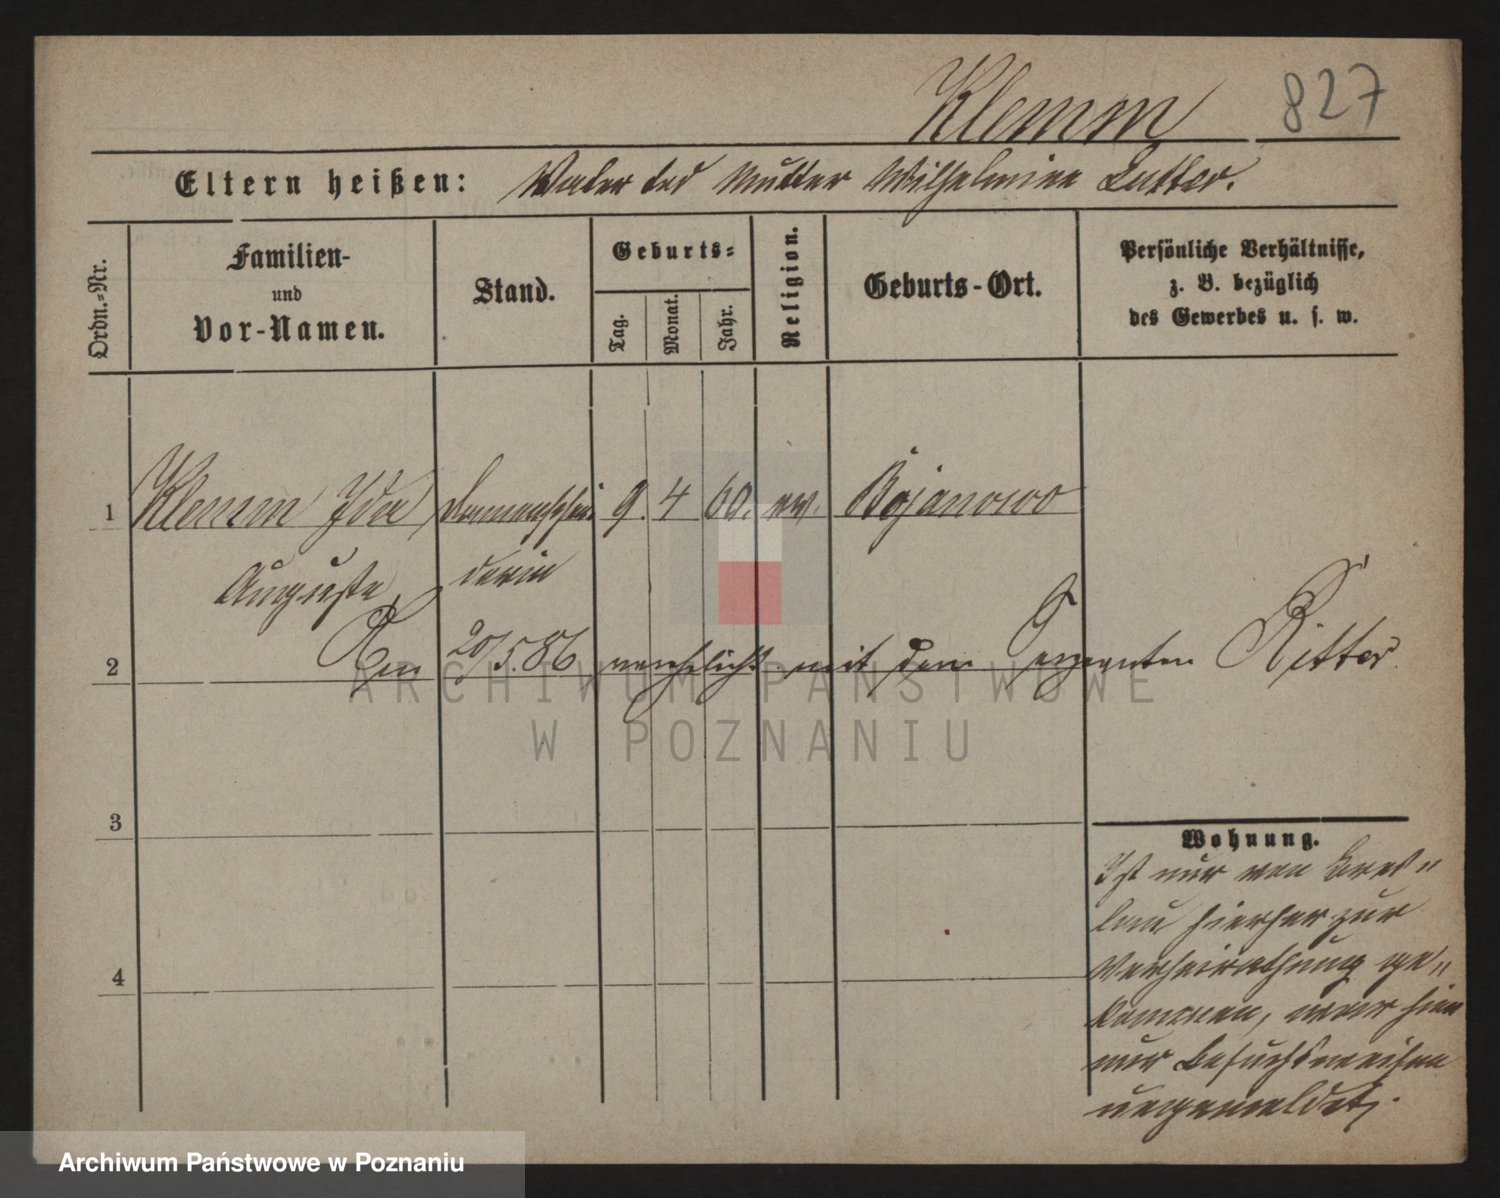 Klemm 827
Eltern heißen: Vater tod Mutter Wilhelmine
Ordn.=Nr.
Familien-
und
Vor-Namen.
Stand.
Geburts=
Tag.
Monat.
Jahr.
Religion.
Geburts-Ort.
Persönliche Verhältnisse,
z. B. bezüglich
des Gewerbes u. s. w.
1 Klemm Ida Damenschnei 9. 4 60. ev. Bojanowo
Auguste derin
2 Am 20/5.86 verehelicht mit dem Ritter.
3
4
Wohnung.
Ist nur von Bres"
lau hierher zur
Verheirathung ge"
kommen, war hier
nur besuchsweise
angemeldet.
ARCHIWUM PAŃSTWOWE
W POZNANIU
Archiwum Państwowe w Poznaniu